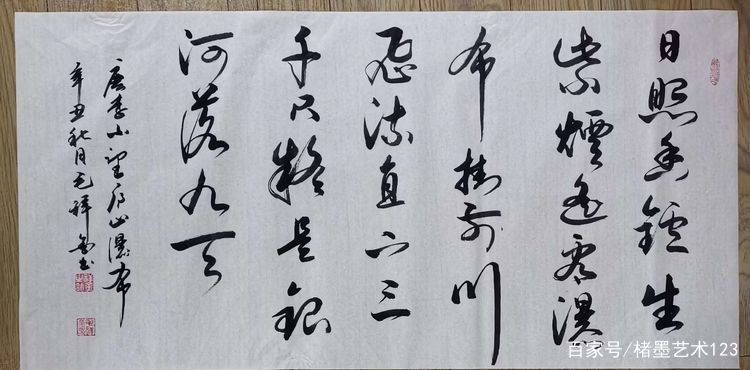 日照香鑪生
紫煙遙看瀑
布掛前川
飛流直下三
千尺疑是銀
河落九天
唐李白望庐山瀑布
辛丑秋月毛祥書
百家号/楮墨艺术123